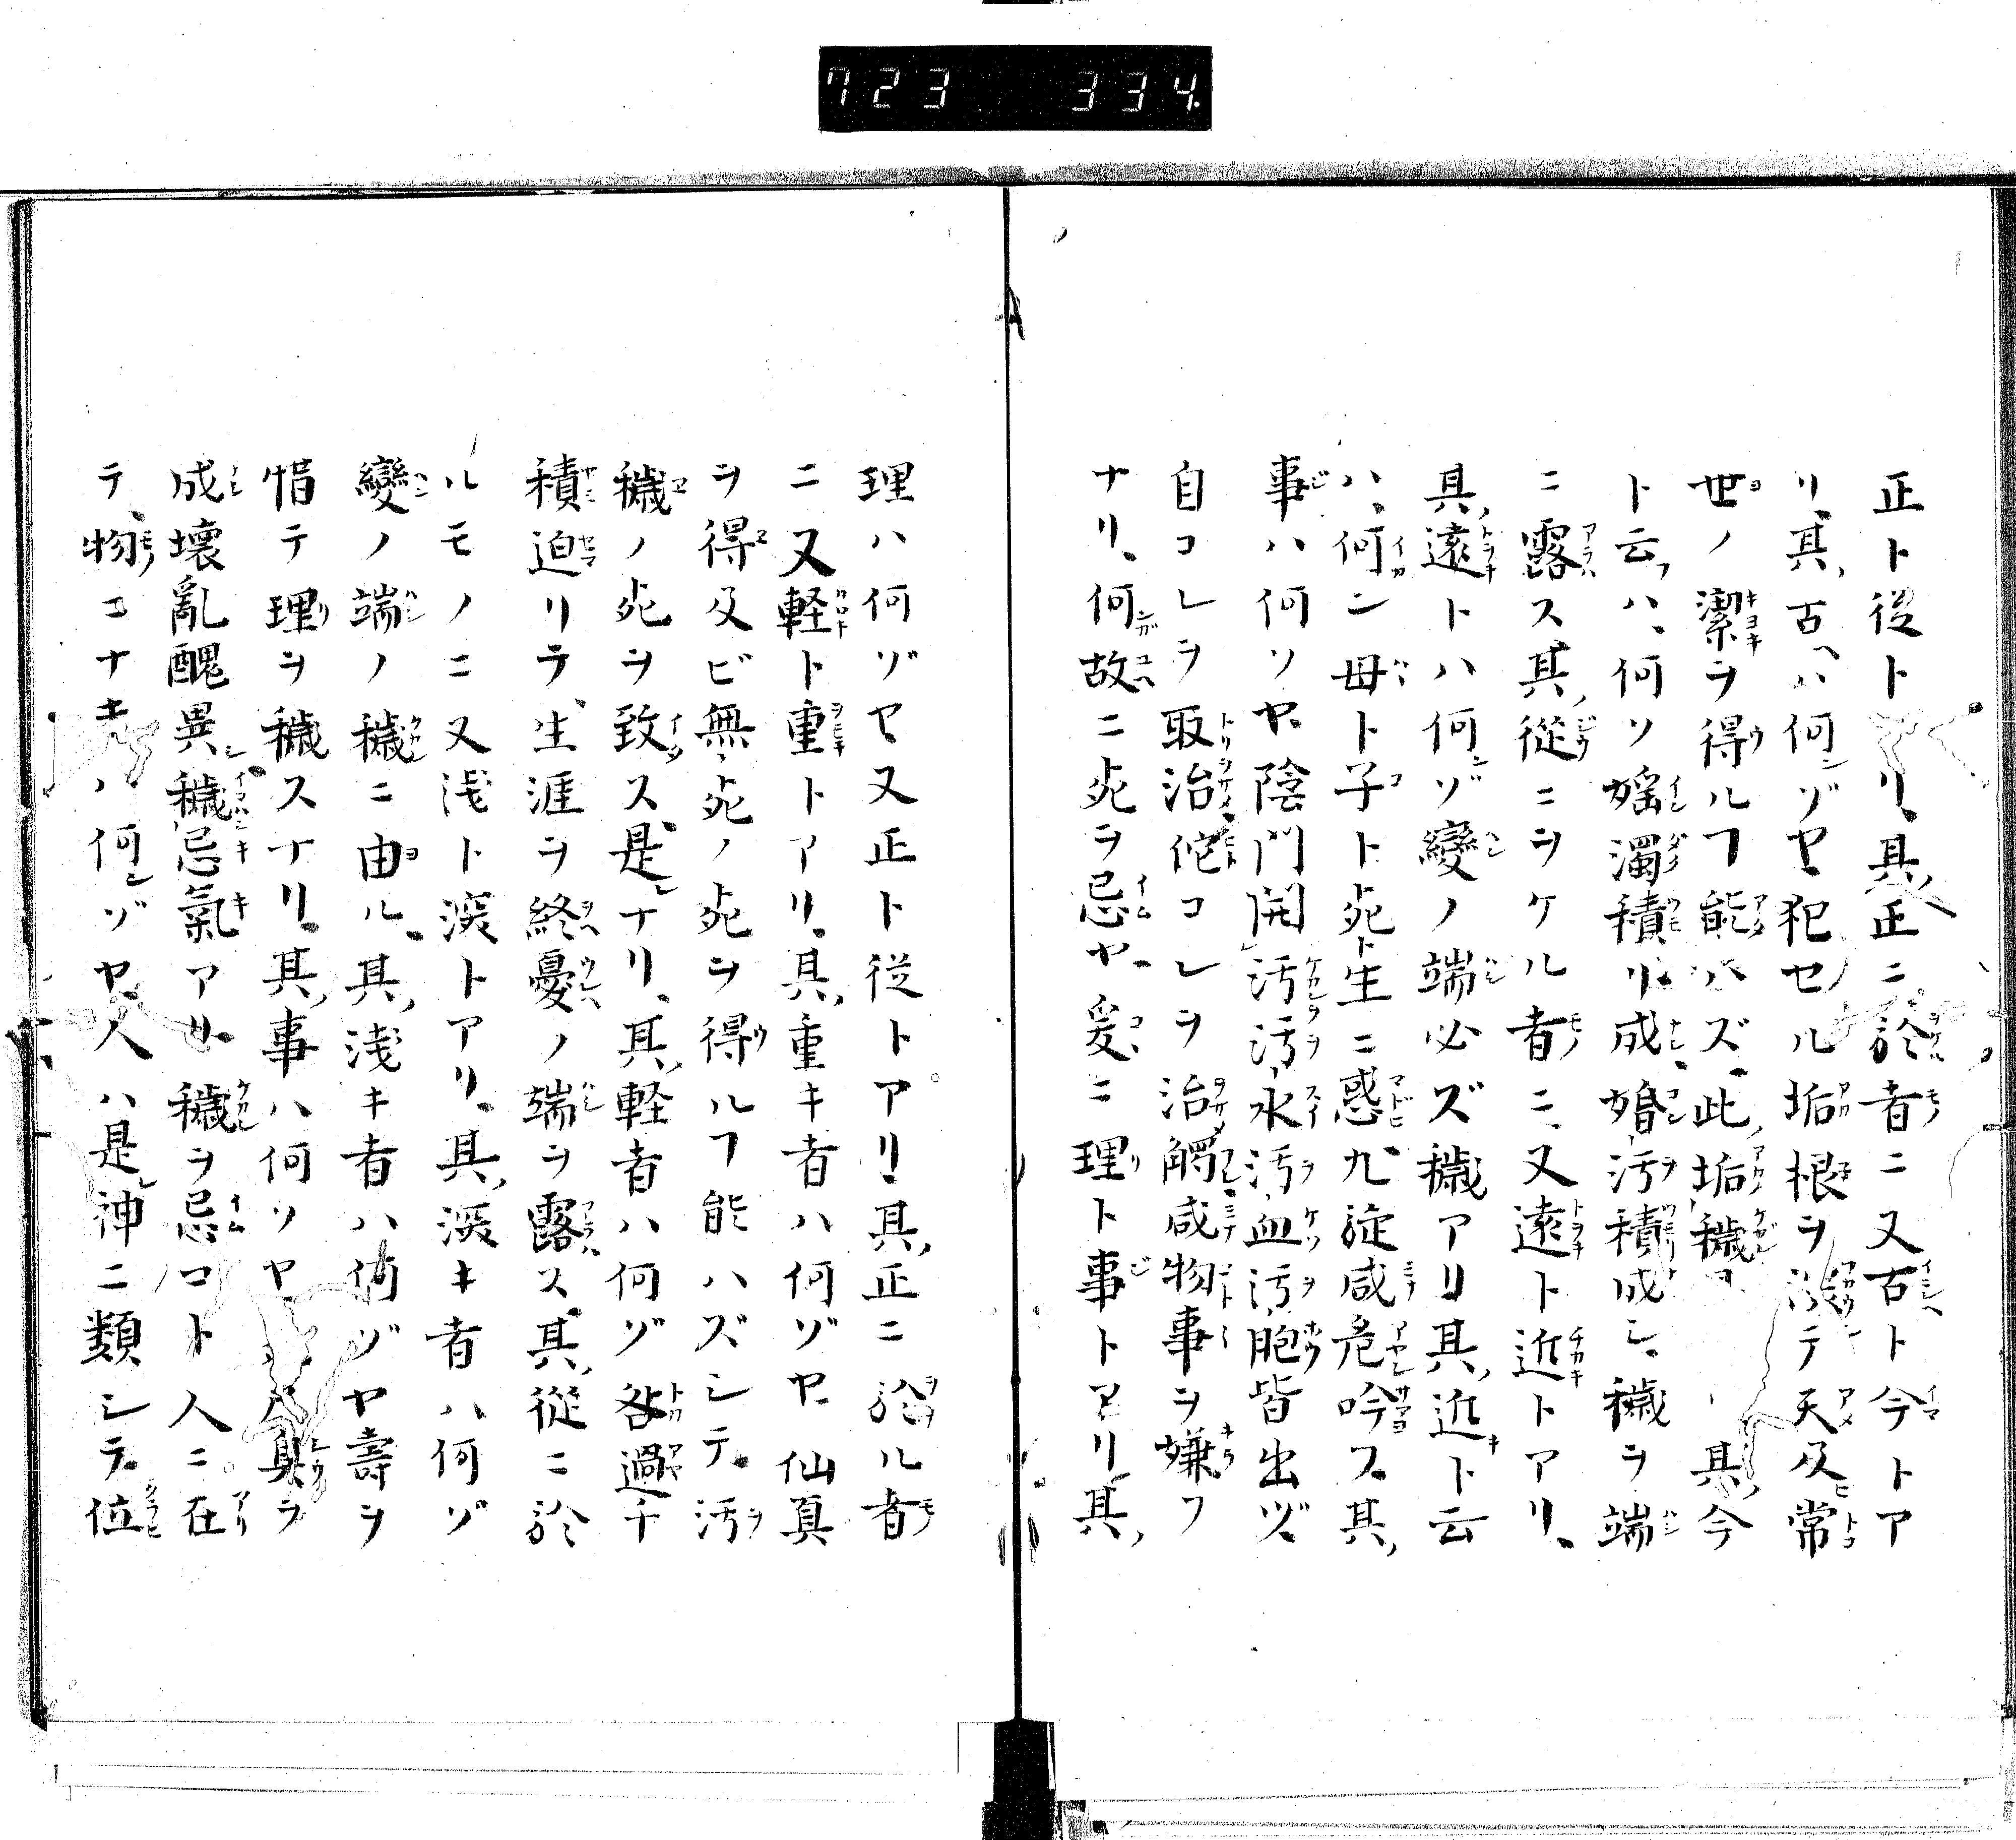 723 334.
正ト從トリ、其正ニ於者ニ又古ト今トア
リ、其古ヘハ何ゾヤ犯セル垢根ヲテ天及常
世ノ潔ヲ得ルヿ能ハズ、此垢穢 其今
ト云フハ、何ソ婬濁積リ成、婚汚積成シ、穢ヲ端
ニ露ス其從ニヲケル者ニ、又遠ト近トアリ、
其遠トハ何ゾ變ノ端必ズ穢アリ其近ト云
ハ、何ン母ト子ト死ト生ニ惑九淀咸危吟フ、其
事ハ何ソヤ、陰門開汚汚水汚血汚胞皆出ヅ、
自コレヲ取治佗コレヲ治觸、咸物事ヲ嫌フ
ナリ、何故ニ死ヲ忌ヤ、爰ニ理ト事トアリ其
理ハ何ゾヤ又正ト從トアリ其正ニ於ル者
ニ又軽ト重トアリ、其重キ者ハ何ゾヤ、仙真
ヲ得及ビ無死ノ死ヲ得ルヿ能ハズシテ、汚
穢ノ死ヲ致ス、是ナリ、其軽者ハ何ゾ咎過千
積迫リテ、生涯ヲ終憂ノ端ヲ露ス、其從ニ於
ルモノニ又浅ト深トアリ、其深キ者ハ何ゾ
變ノ端ノ穢ニ由ル、其淺キ者ハ何ゾヤ壽ヲ
惜テ理ヲ穢スナリ、其事ハ何ソヤ、人具ラ
成壞亂醜異穢忌氣アリ、穢ヲ忌コト人ニ在
テ、物コナキハ何ゾヤ、人ハ是神ニ類シテ、位